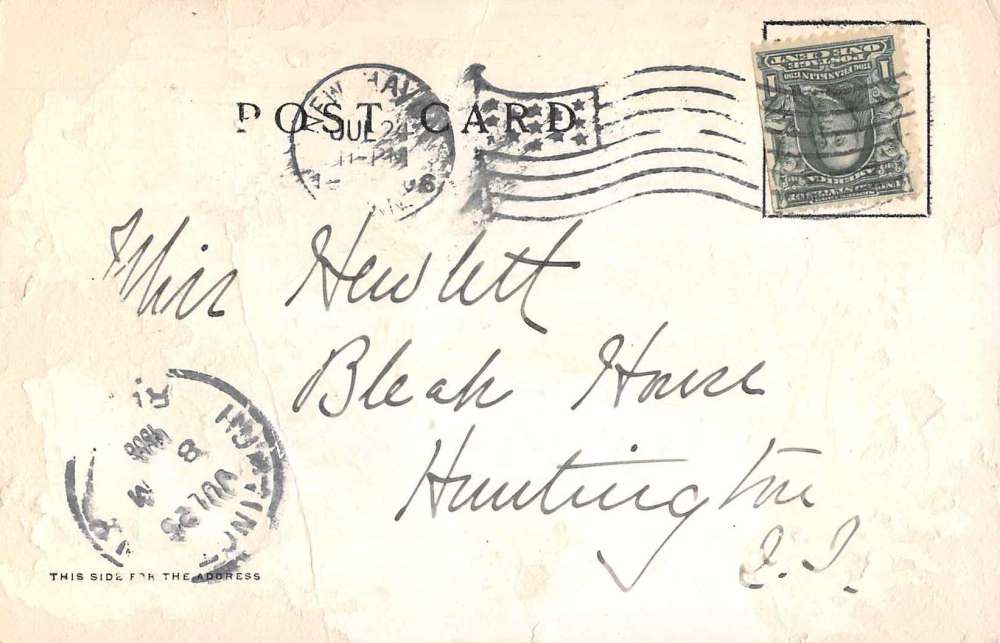 POST CARD
NEW HAV
JUL 24
11-PM
ONE CENT
POSTAGE
1706 FRANKLIN 1790
1 1
AMERICA
Miss Hewlett
Bleak House
Huntington
L. I.
HUNTIN
JUL 25
8
M
1906
N.Y.
THIS SIDE FOR THE ADDRESS